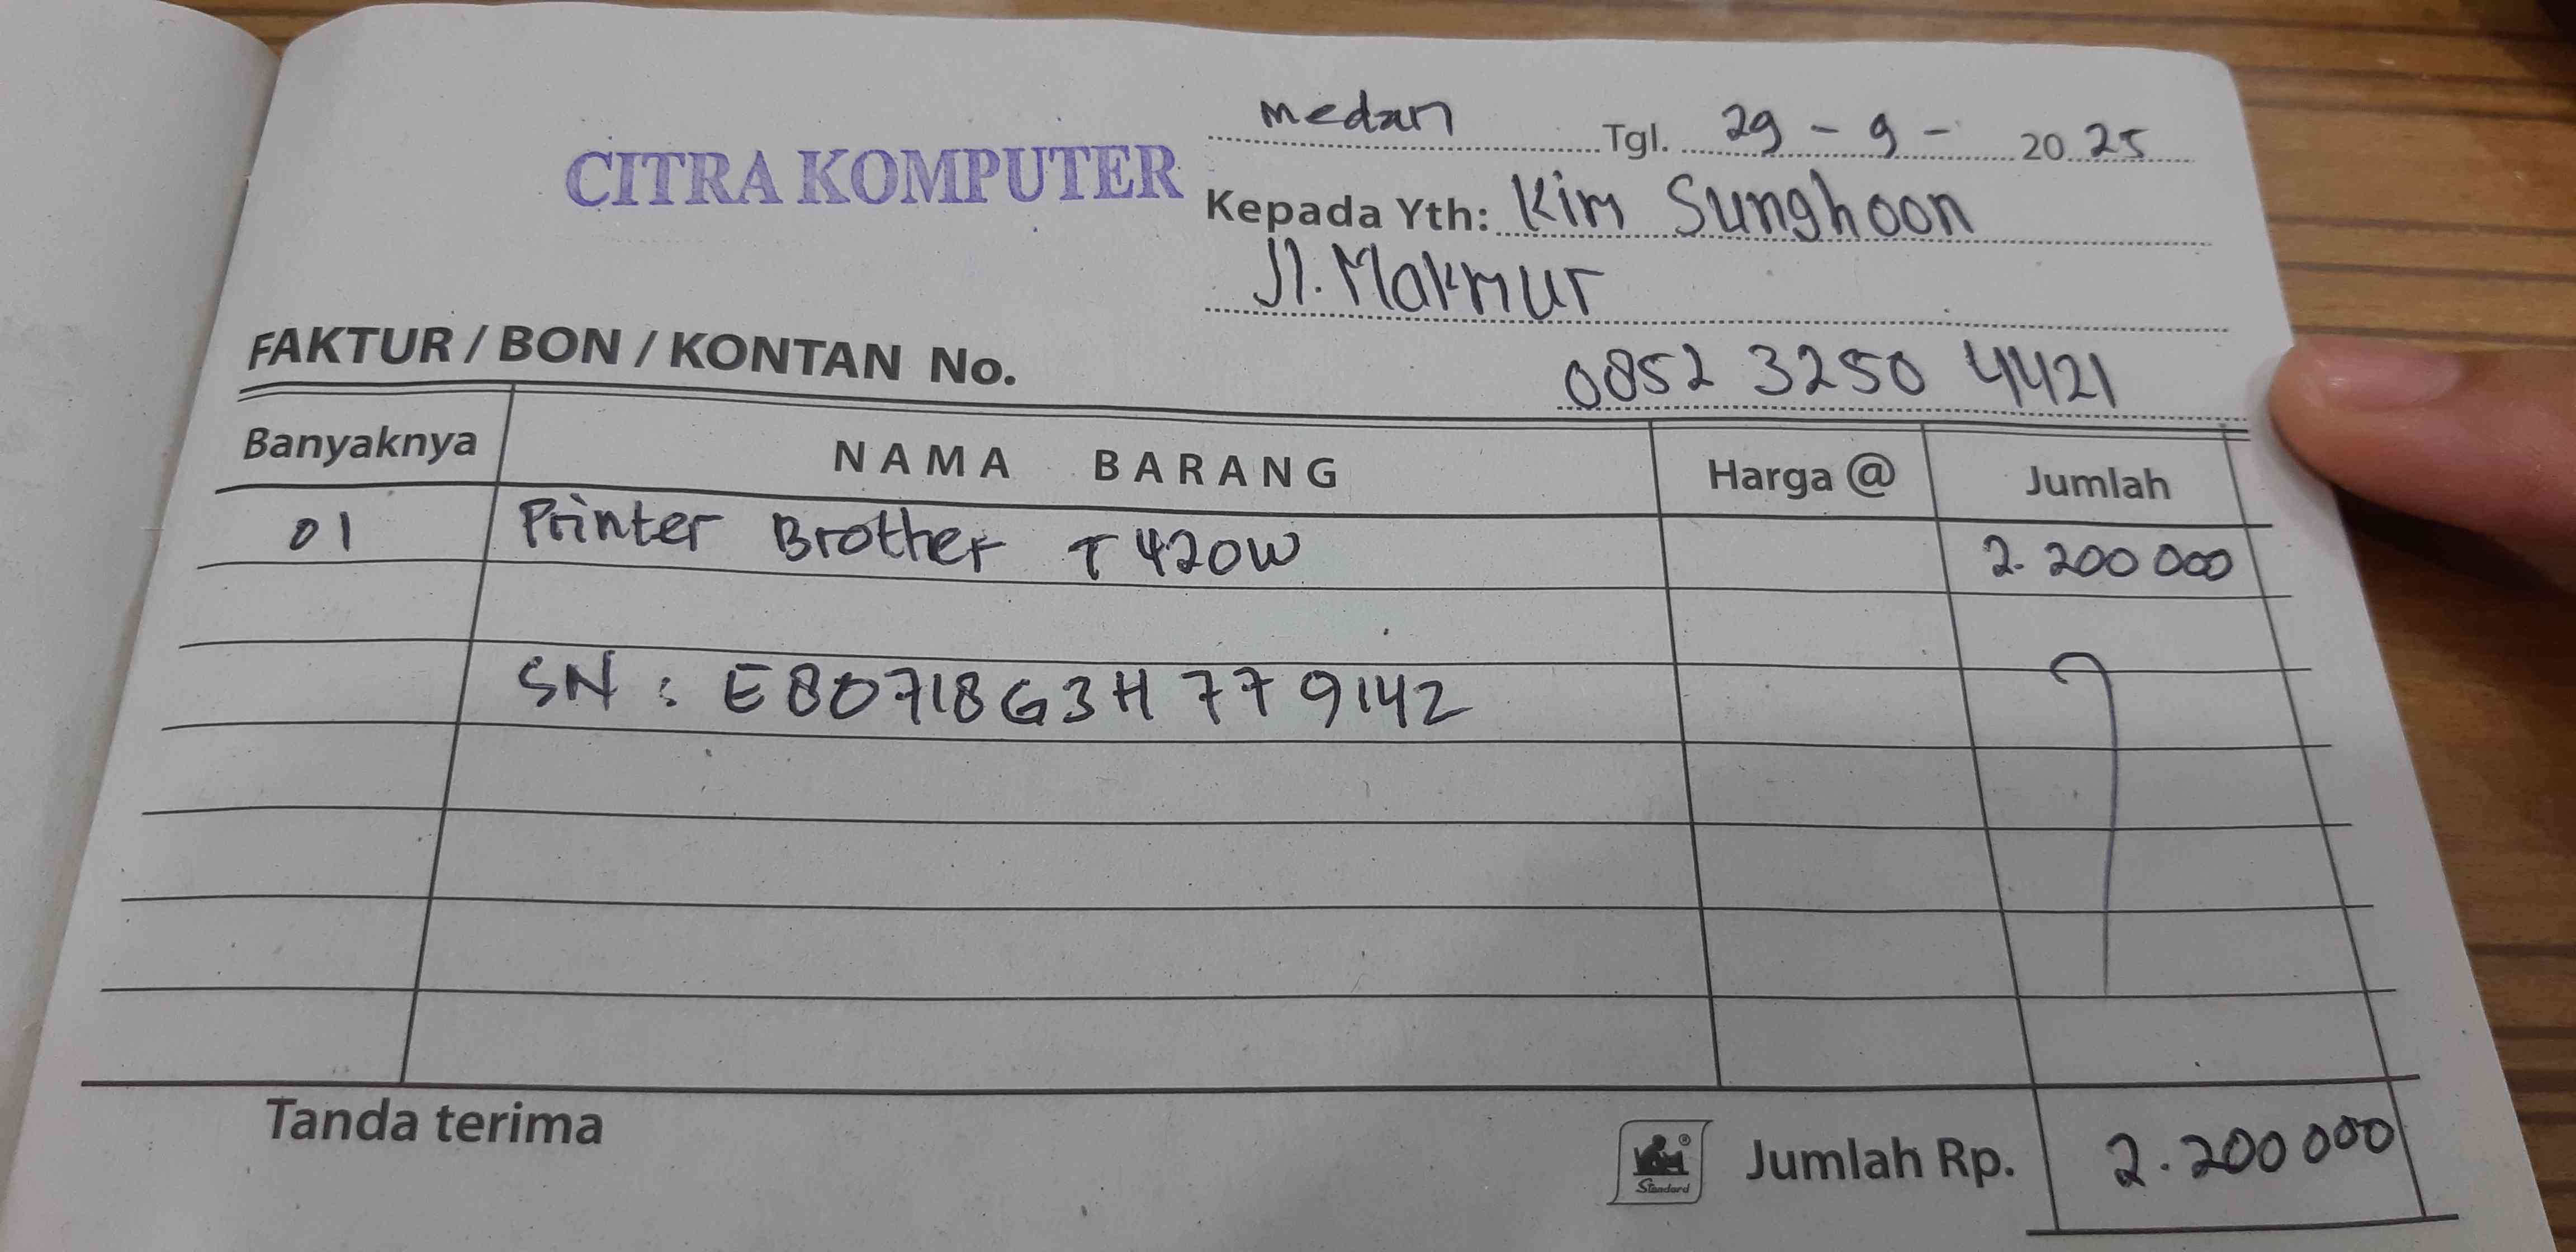 medan Tgl. 29 - 9 - 2025
CITRA KOMPUTER
Kepada Yth: Kim Sunghoon
Jl. Makmur
FAKTUR / BON / KONTAN No.
0852 3250 4421
Banyaknya NAMA BARANG Harga @ Jumlah
01 Printer Brother T420W 2.200 000
SN : E80718G3H779142
Tanda terima
Standard
Jumlah Rp. 2.200 000